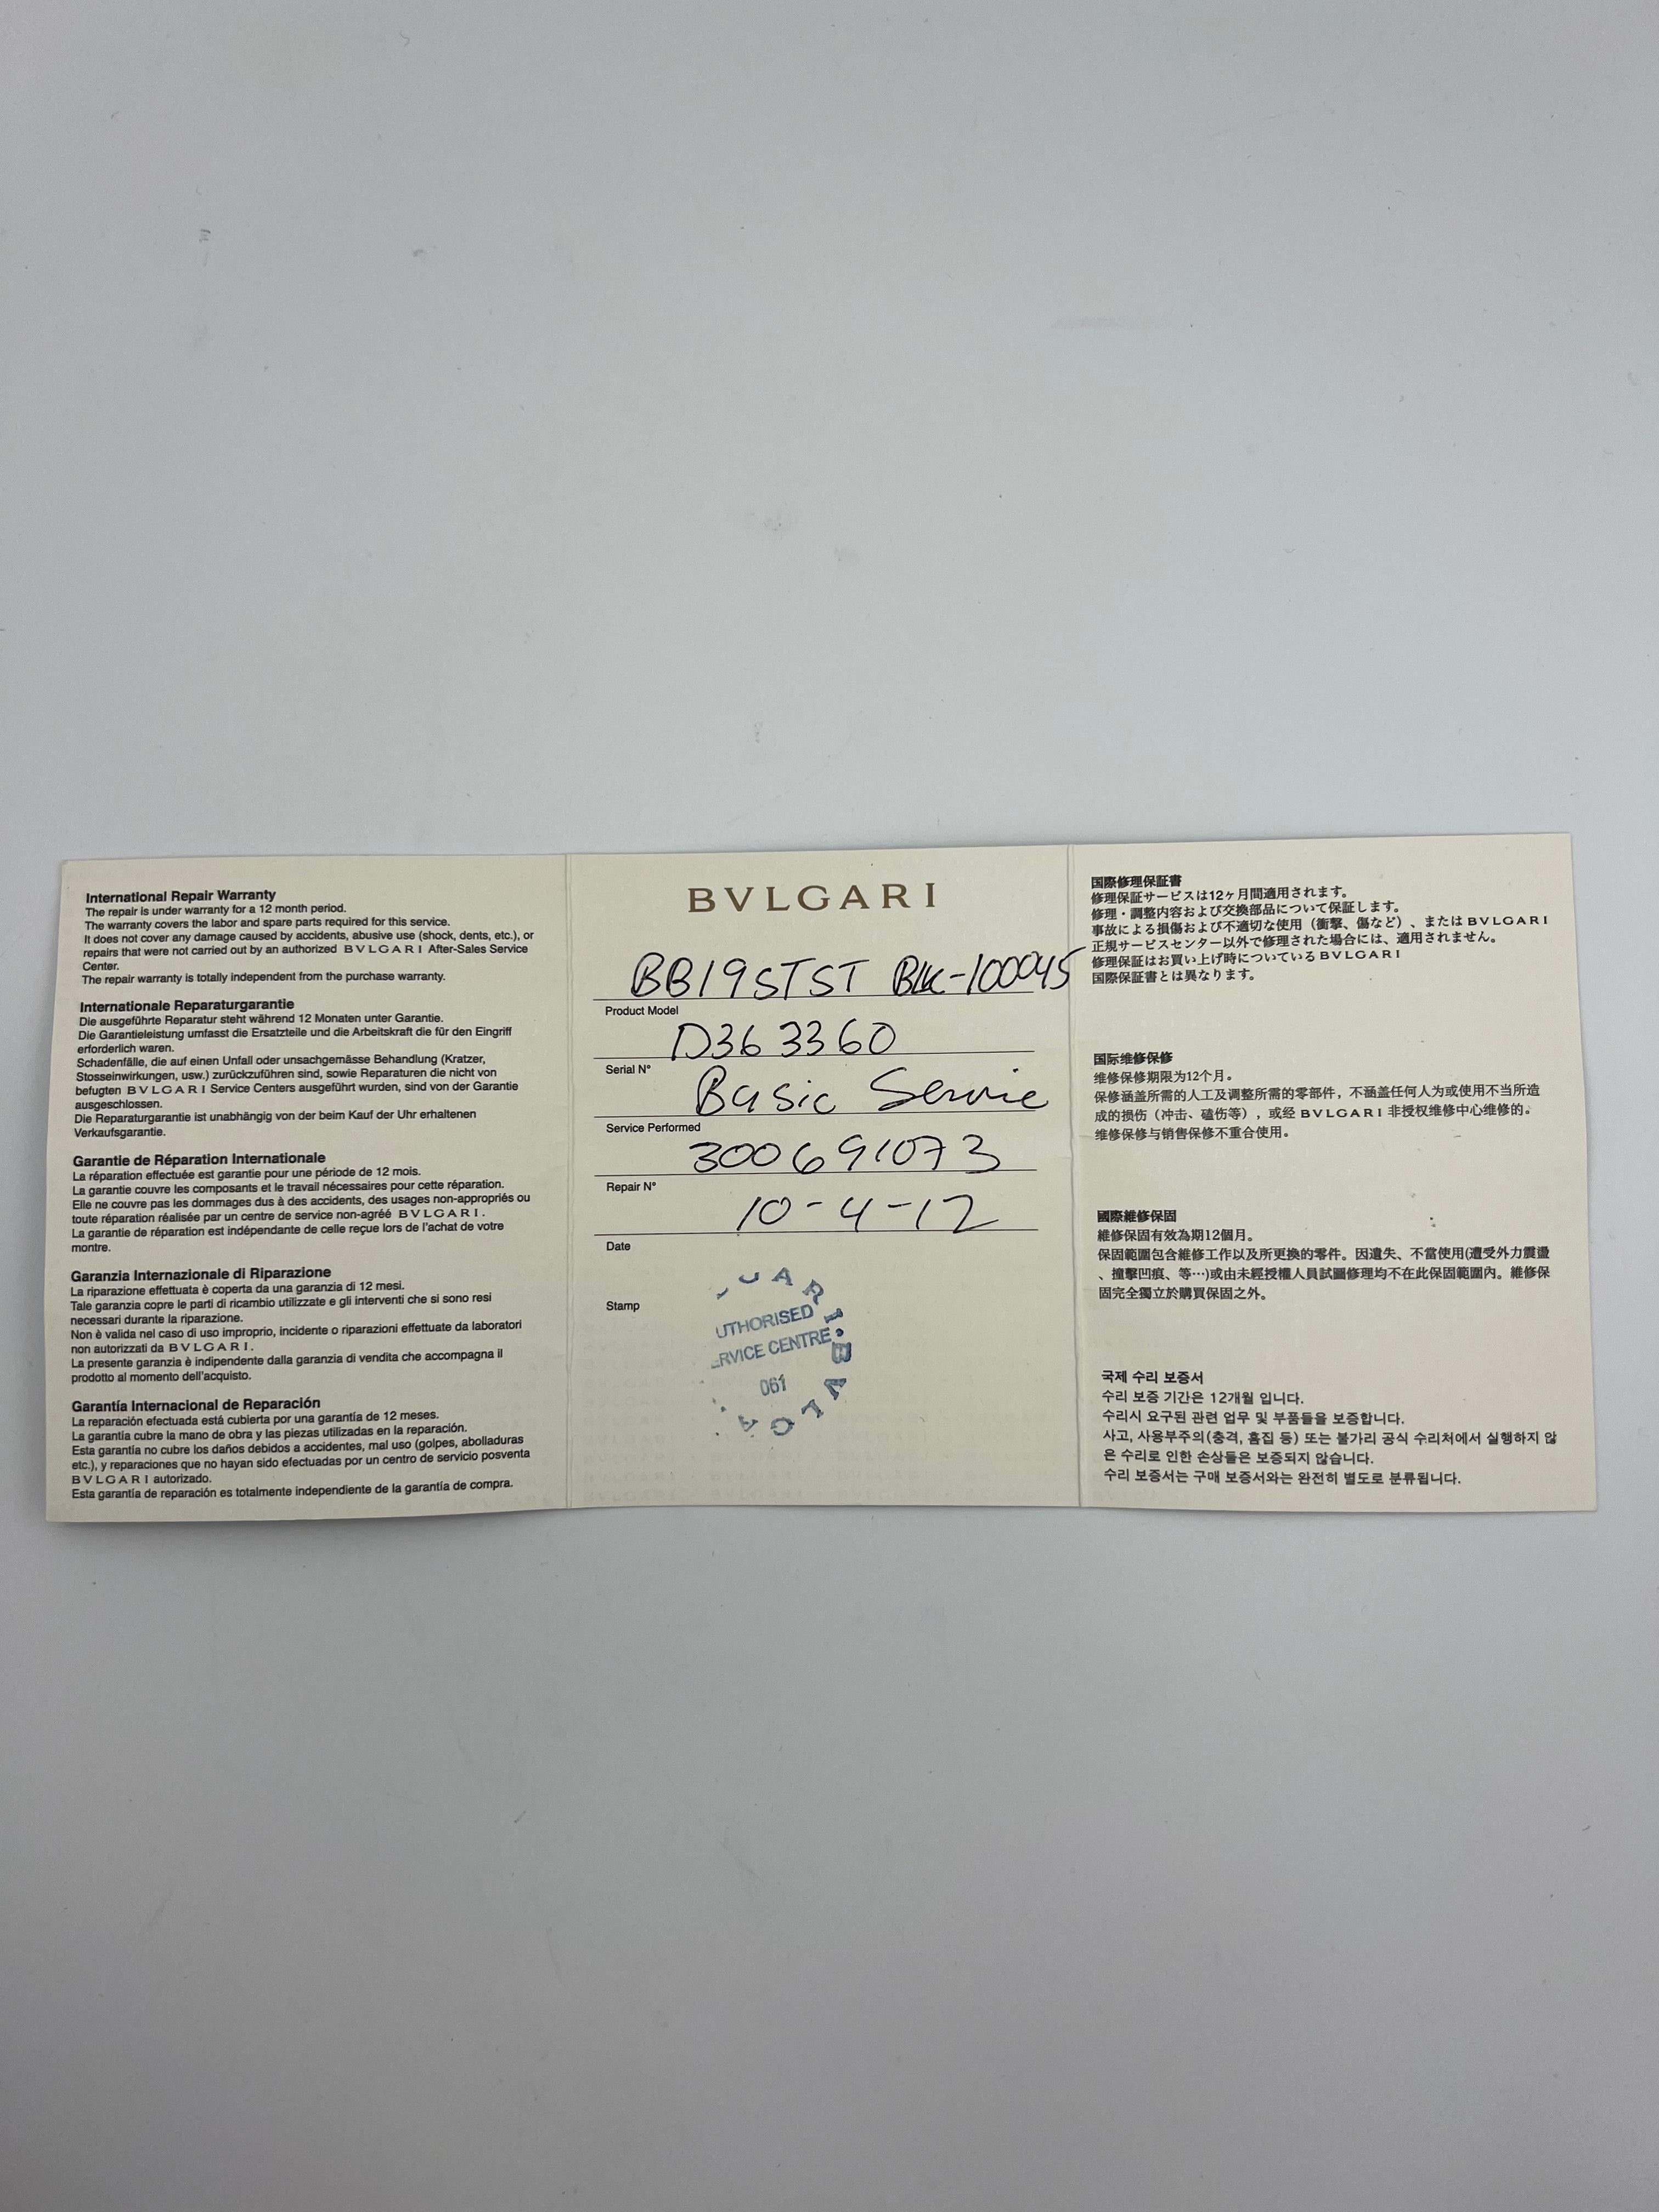 International Repair Warranty
The repair is under warranty for a 12 month period.
The warranty covers the labor and spare parts required for this service.
It does not cover any damage caused by accidents, abusive use (shock, dents, etc.), or
repairs that were not carried out by an authorized BVLGARI After-Sales Service
Center.
The repair warranty is totally independent from the purchase warranty.
Internationale Reparaturgarantie
Die ausgeführte Reparatur steht während 12 Monaten unter Garantie.
Die Garantieleistung umfasst die Ersatzteile und die Arbeitskraft die für den Eingriff
erforderlich waren.
Schadenfälle, die auf einen Unfall oder unsachgemässe Behandlung (Kratzer,
Stosseinwirkungen, usw.) zurückzuführen sind, sowie Reparaturen die nicht von
befugten BVLGARI Service Centers ausgeführt wurden, sind von der Garantie
ausgeschlossen.
Die Reparaturgarantie ist unabhängig von der beim Kauf der Uhr erhaltenen
Verkaufsgarantie.
Garantie de Réparation Internationale
La réparation effectuée est garantie pour une période de 12 mois.
La garantie couvre les composants et le travail nécessaires pour cette réparation.
Elle ne couvre pas les dommages dus à des accidents, des usages non-appropriés ou
toute réparation réalisée par un centre de service non-agréé BVLGARI.
La garantie de réparation est indépendante de celle reçue lors de l'achat de votre
montre.
Garanzia Internazionale di Riparazione
La riparazione effettuata è coperta da una garanzia di 12 mesi.
Tale garanzia copre le parti di ricambio utilizzate e gli interventi che si sono resi
necessari durante la riparazione.
Non è valida nel caso di uso improprio, incidente o riparazioni effettuate da laboratori
non autorizzati da BVLGARI.
La presente garanzia è indipendente dalla garanzia di vendita che accompagna il
prodotto al momento dell'acquisto.
Garantía Internacional de Reparación
La reparación efectuada está cubierta por una garantía de 12 meses.
La garantía cubre la mano de obra y las piezas utilizadas en la reparación.
Esta garantía no cubre los daños debidos a accidentes, mal uso (golpes, abolladuras
etc.), y reparaciones que no hayan sido efectuadas por un centro de servicio posventa
BVLGARI autorizado.
Esta garantía de reparación es totalmente independiente de la garantía de compra.
BVLGARI
BB19STST Blk-100045
Product Model
D363360
Serial N°
Basic Servie
Service Performed
300691073
Repair N°
10-4-12
Date
Stamp
UARI·BVLGA
UTHORISED
RVICE CENTRE
061
国際修理保証書
修理保証サービスは12ヶ月間適用されます。
修理・調整内容および交換部品について保証します。
事故による損傷および不適切な使用（衝撃、傷など）、または BVLGARI
正規サービスセンター以外で修理された場合には、適用されません。
修理保証はお買い上げ時についている BVLGARI
国際保証書とは異なります。
国际维修保修
维修保修期限为12个月。
保修涵盖所需的人工及调整所需的零部件，不涵盖任何人为或使用不当所造
成的损伤（冲击、磕伤等）, 或经 BVLGARI 非授权维修中心维修的。
维修保修与销售保修不重合使用。
國際維修保固
維修保固有效為期12個月。
保固範圍包含維修工作以及所更換的零件。因遺失、不當使用(遭受外力震盪
、撞擊凹痕、等…)或由未經授權人員試圖修理均不在此保固範圍內。維修保
固完全獨立於購買保固之外。
국제 수리 보증서
수리 보증 기간은 12개월 입니다.
수리시 요구된 관련 업무 및 부품들을 보증합니다.
사고, 사용부주의(충격, 흠집 등) 또는 불가리 공식 수리처에서 실행하지 않
은 수리로 인한 손상들은 보증되지 않습니다.
수리 보증서는 구매 보증서와는 완전히 별도로 분류됩니다.